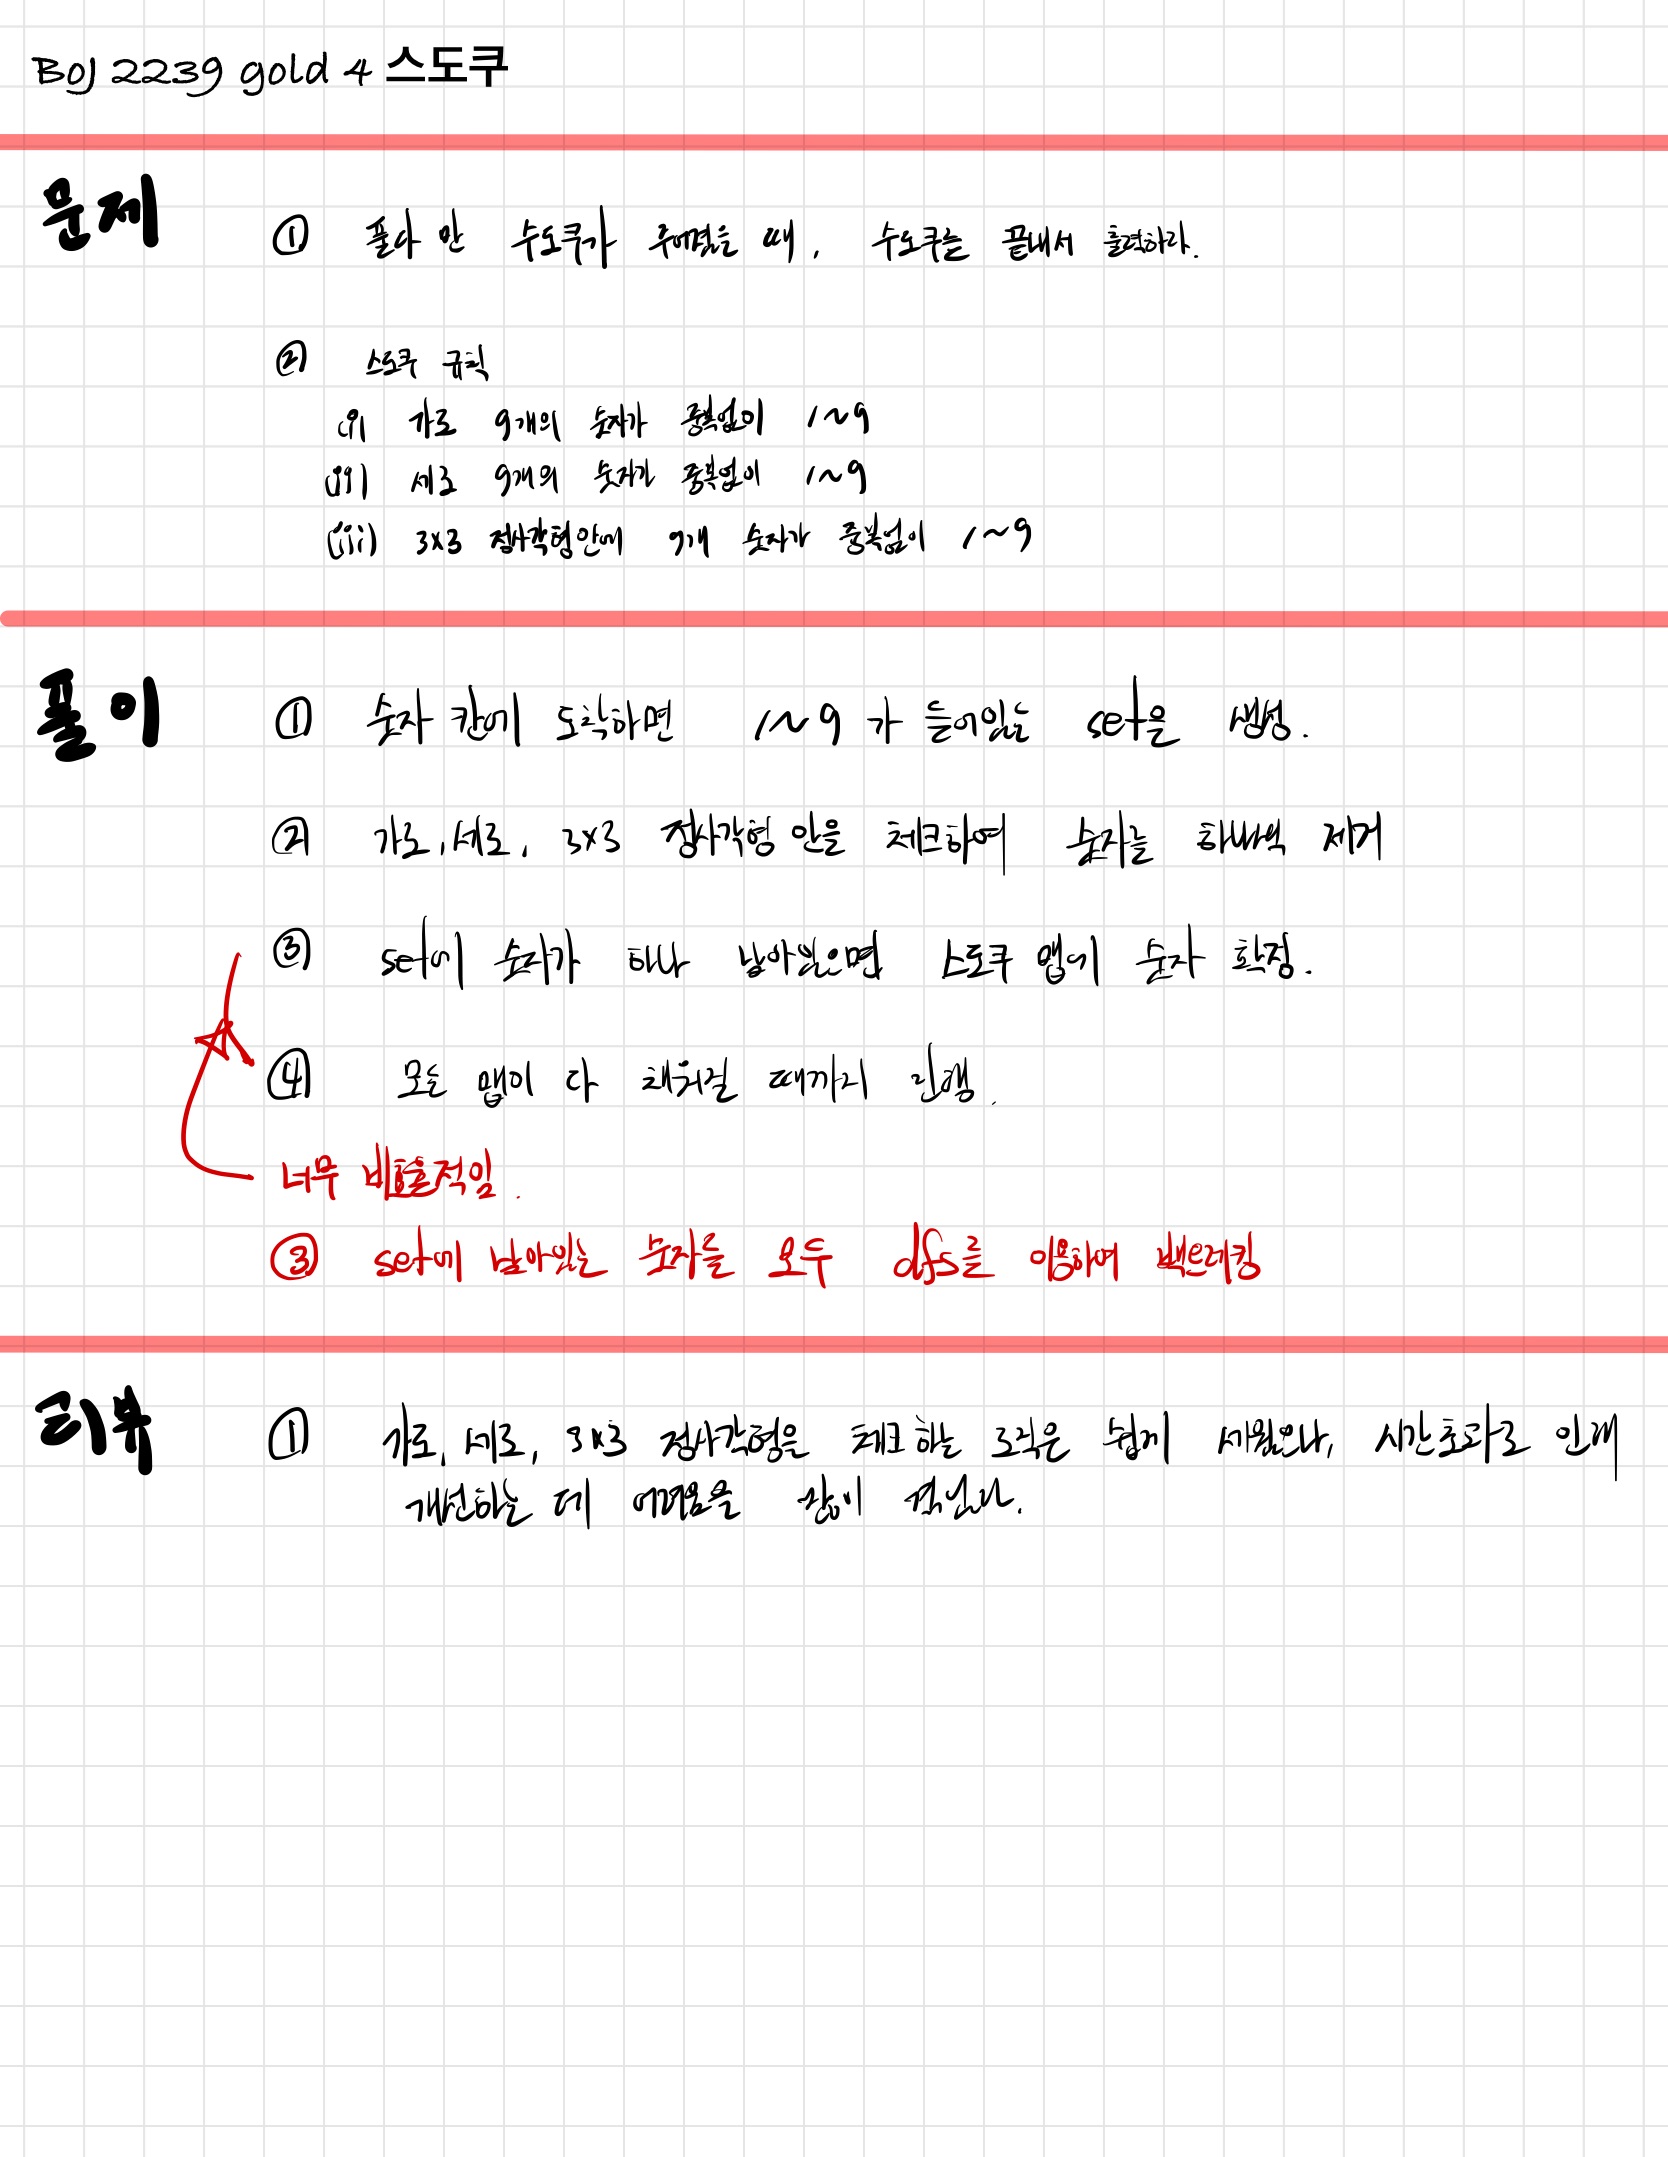 BOJ 2239 gold 4 스도쿠
문제
① 풀다 만 수도쿠가 주어졌을 때, 수도쿠를 끝내서 출력하라.
② 스도쿠 규칙
(i) 가로 9개의 숫자가 중복없이 1~9
(ii) 세로 9개의 숫자가 중복없이 1~9
(iii) 3x3 정사각형안에 9개 숫자가 중복없이 1~9
풀이
① 숫자 칸에 도착하면 1~9가 들어있는 set을 생성.
② 가로, 세로, 3x3 정사각형 안을 체크하여 숫자를 하나씩 제거
③ set에 숫자가 하나 남아있으면 스도쿠 맵에 숫자 확정.
④ 모든 맵이 다 채워질 때까지 진행.
너무 비효율적임.
③ set에 남아있는 숫자를 모두 dfs를 이용하여 백트레킹
리뷰
① 가로, 세로, 3x3 정사각형을 체크하는 로직은 쉽게 세웠으나, 시간초과로 인해
개선하는 데 어려움을 많이 겪었다.